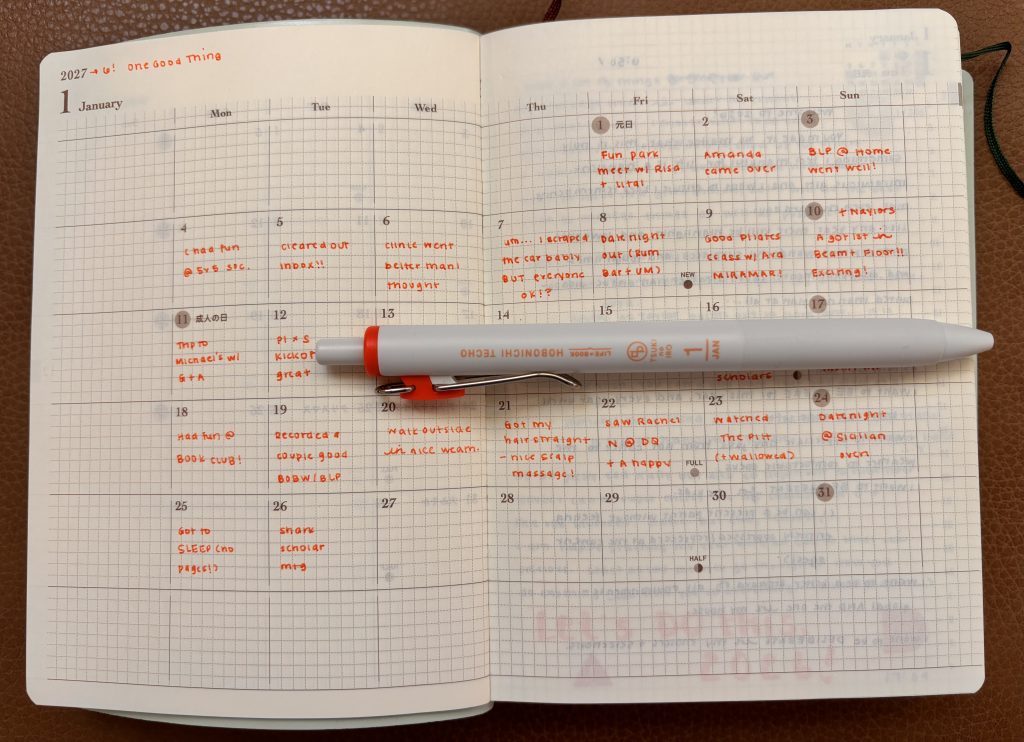 2027 → 6! One Good Thing
1 January
Mon Tue Wed Thu Fri Sat Sun
1 元日
Fun park
meet w/ Risa
+ Lital
2
Amanda
came over
3
BLP @ Home
went well!
4
I had fun
@ 5v5 soc.
5
cleared out
inbox!!
6
clinic went
better than I
thought
7
um... I scraped
the car badly
BUT everyone
ok!?
8
Date night
out (Rum
Bar + UM)
9
Good Pilates
class w/ Ava
MIRAMAR!
NEW
10 + Naylors
A got 1st in
Beam + Floor!!
Exciting!
11 成人の日
Trip to
Michael's w/
G + A
12
PI x S
KICKOF
great
13
14
15
16
scholars
17
18
Had fun @
BOOK CLUB!
19
Recorded a
couple good
BOBW/BLP
20
Walk outside
in nice weath.
21
Got my
hair straight
- nice scalp
massage!
22
saw Rachel
N @ DQ
+ A happy
FULL
23
watched
The Pitt
(+ wallowed)
24
Date night
@ Sicilian
oven
25
Got to
SLEEP (no
pages!)
26
shark
scholar
mtg
27
28
29
HALF
30
31
HOBONICHI TECHO
LIFE BOOK
TSUKI
no
IRO
1
JAN